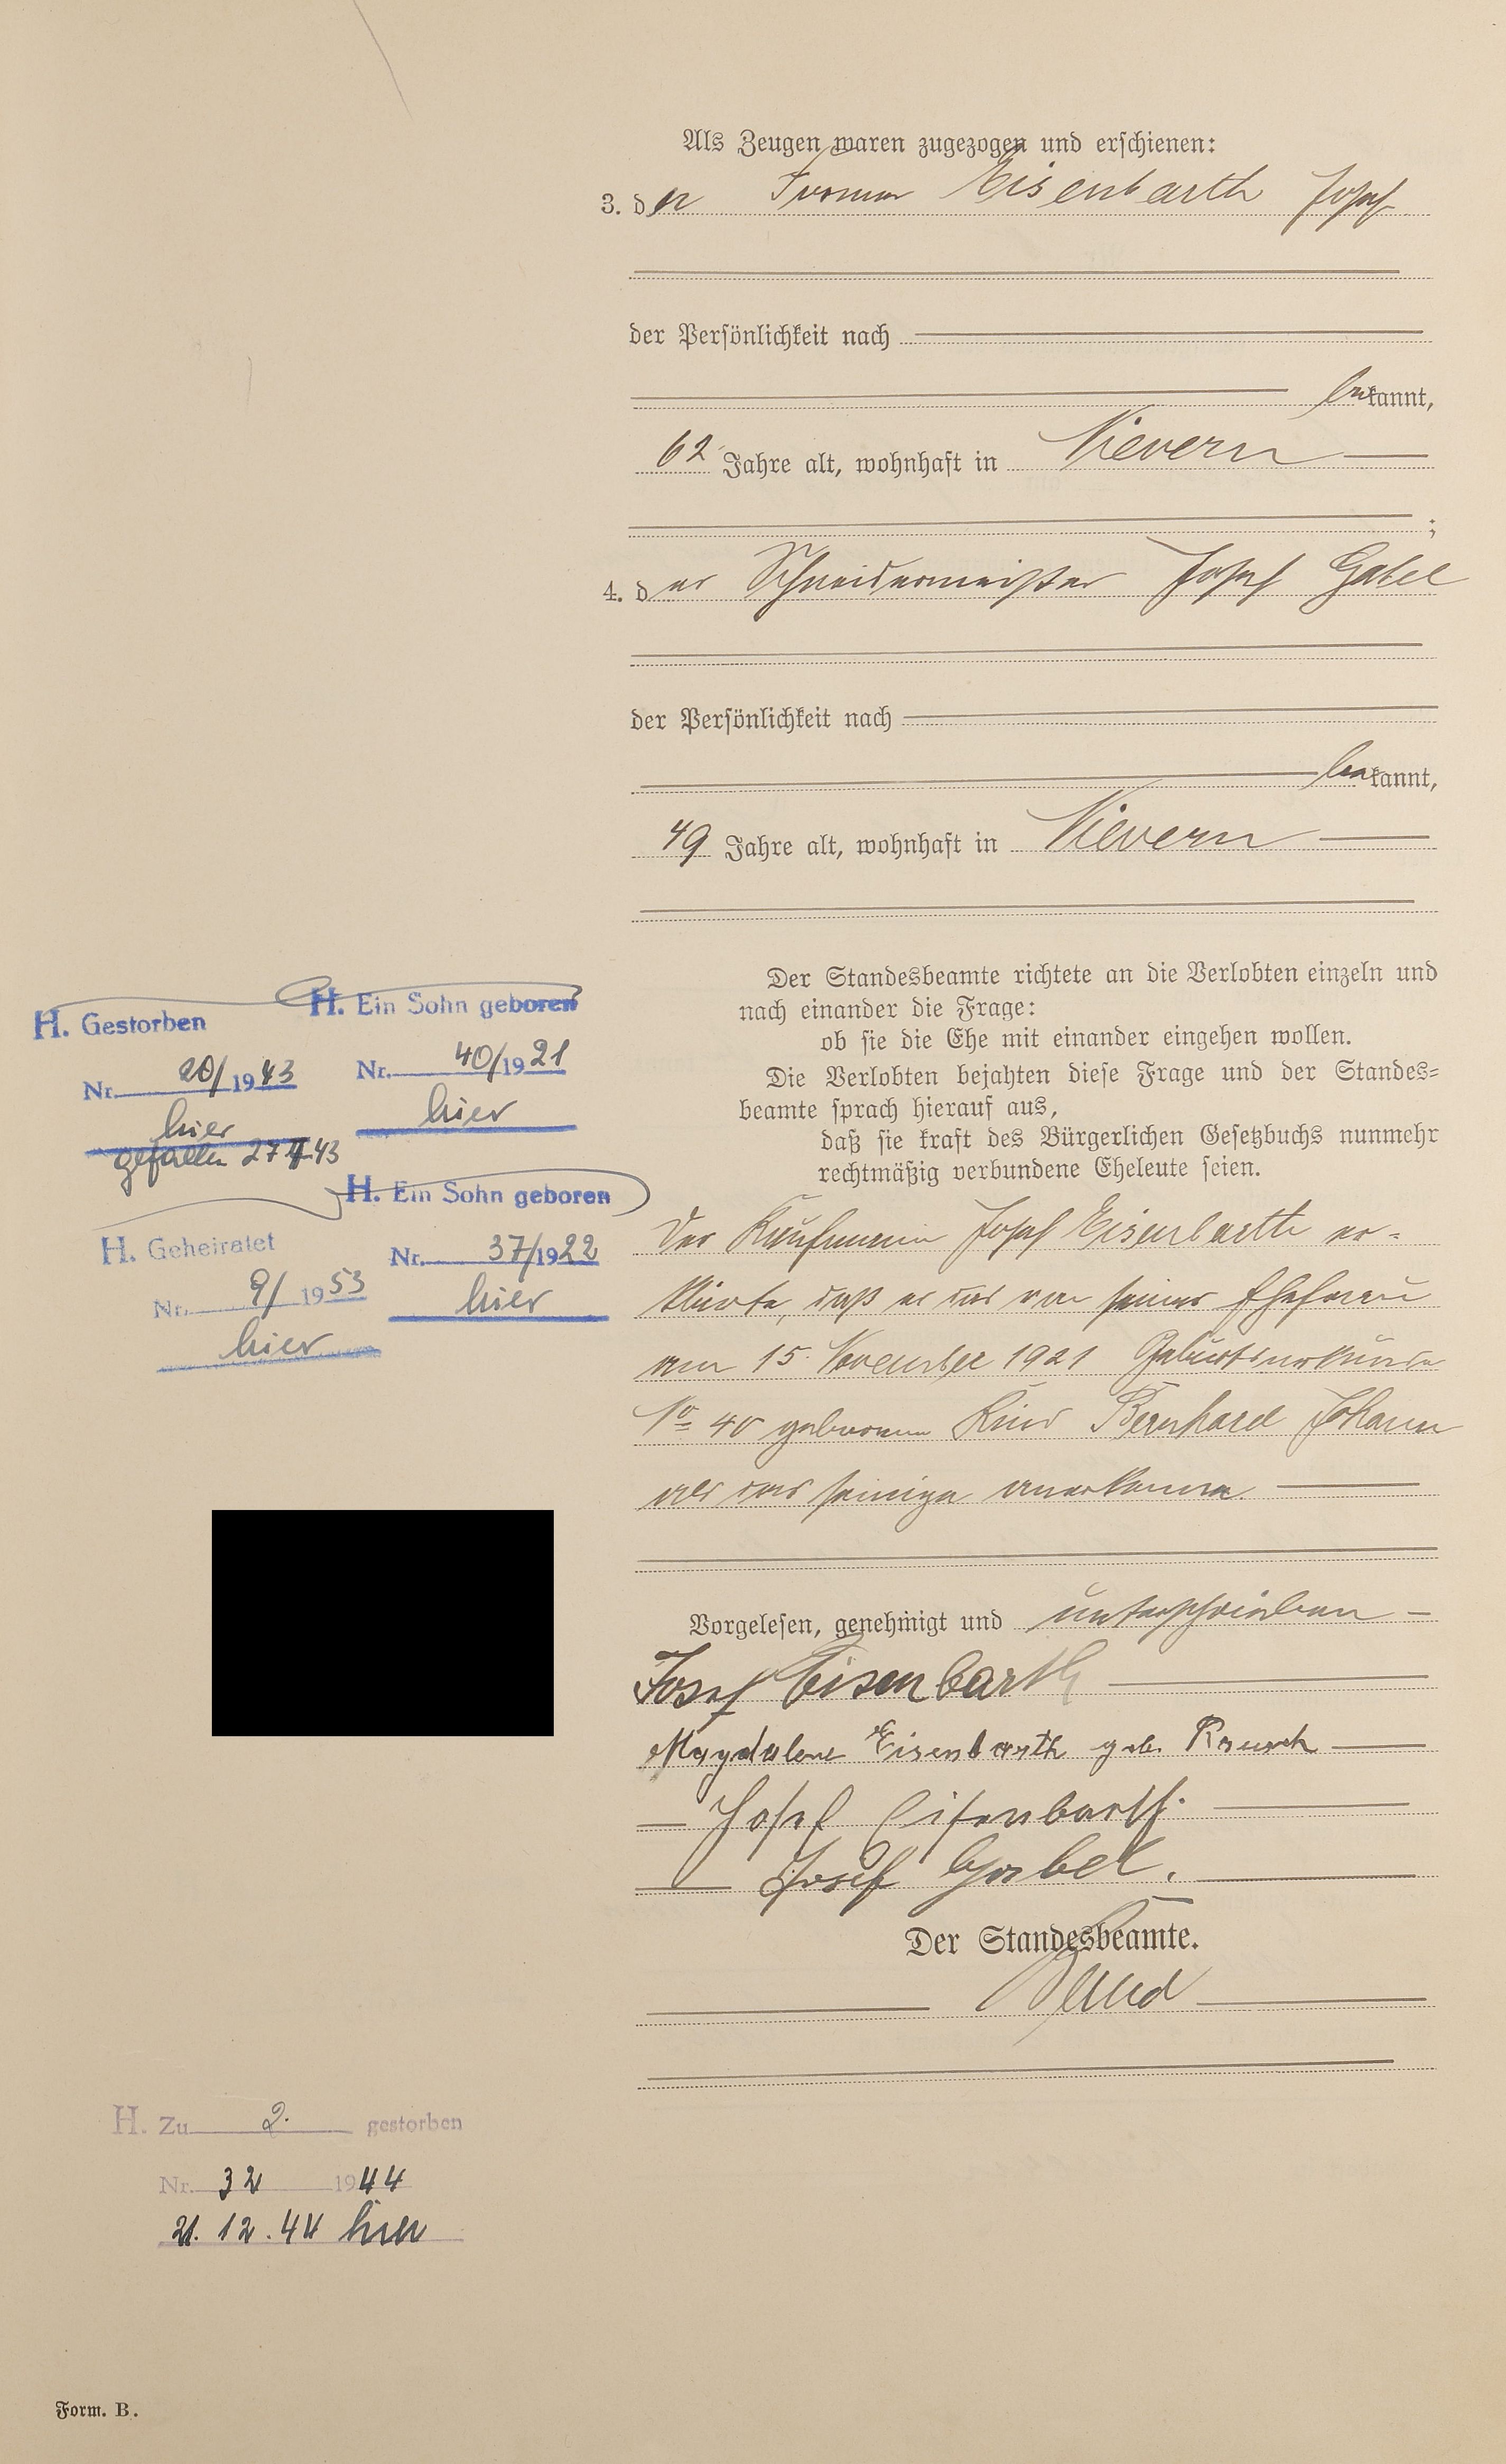 Als Zeugen waren zugezogen und erschienen:
3. der Former Eisenbarth Josef
der Persönlichkeit nach
bekannt,
62 Jahre alt, wohnhaft in Nievern
;
4. der Schneidermeister Josef Gabel
der Persönlichkeit nach
bekannt,
49 Jahre alt, wohnhaft in Nievern
Der Standesbeamte richtete an die Verlobten einzeln und
nach einander die Frage:
ob sie die Ehe mit einander eingehen wollen.
Die Verlobten bejahten diese Frage und der Standes=
beamte sprach hierauf aus,
daß sie kraft des Bürgerlichen Gesetzbuchs nunmehr
rechtmäßig verbundene Eheleute seien.
Der Kaufmann Josef Eisenbarth er-
klärte, daß er das von seiner Ehefrau
am 15. November 1921 Geburtsurkunde
No 40 geborene Kind Bernhard Johann
als das seinige anerkenne.
Vorgelesen, genehmigt und unterschrieben
Josef Eisenbarth
Magdalene Eisenbarth geb. Kreusch
Josef Eisenbarth.
Josef Gabel.
Der Standesbeamte.
H. Gestorben
Nr. 20/1943
hier
gefallen 27 4 43
H. Ein Sohn geboren
Nr. 40/1921
hier
H. Geheiratet
Nr. 9/1953
hier
H. Ein Sohn geboren
Nr. 37/1922
hier
H. Zu 2. gestorben
Nr. 32 1944
21. 12. 44 hier
Form. B.